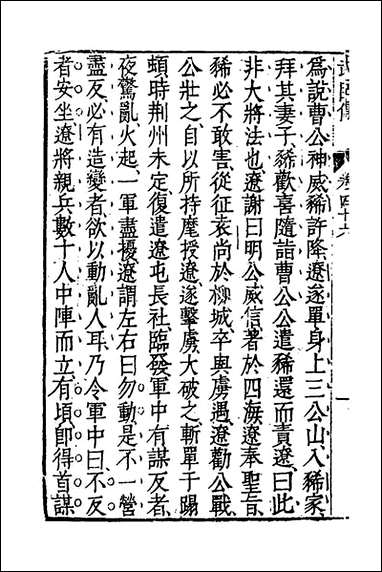 卷四十六
一
爲說曹公神威豨許降遼遂單身上三公山入豨家
拜其妻子豨歡喜隨詣曹公公遣豨還而責遼曰此
非大將法也遼謝曰明公威信著於四海遼奉聖旨
豨必不敢害從征袁尚於柳城卒與虜遇遼勸公戰
公壯之自以所持麾授遼遂擊虜大破之斬單于蹋
頓時荆州未定復遣遼屯長社臨發軍中有謀反者
夜驚亂火起一軍盡擾遼謂左右曰勿動是不一營
盡反必有造變者欲以動亂人耳乃令軍中曰不反
者安坐遼將親兵數十人中陣而立有頃卽得首謀